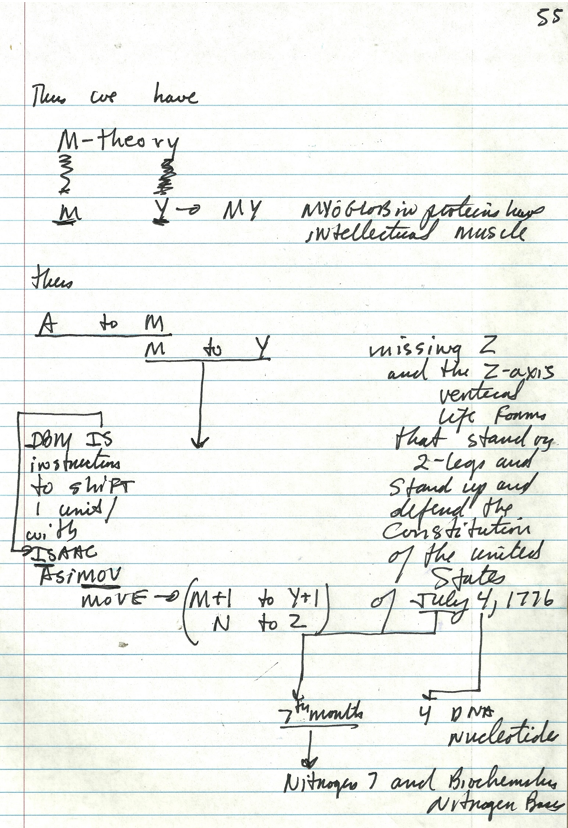 55
Thus we have
M-theory
M Y → MY MYOGLOBIN proteins have
intellectual muscle
thus
A to M
M to Y
missing Z
and the Z-axis
vertical
life forms
that stand on
2-legs and
Stand up and
defend the
Constitution
of the united
States
of July 4, 1776
DBM IS
instruction
to shift
1 unit/
with
ISAAC
Asimov
MOVE → (M+1 to Y+1
N to Z)
7th months
4 DNA
Nucleotide
Nitrogen 7 and Biochemistry
Nitrogen Bases